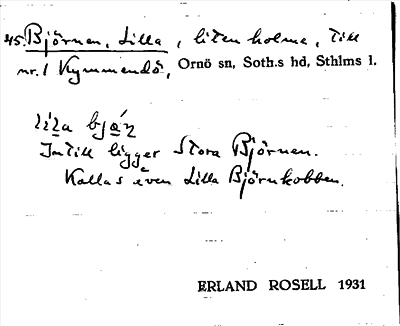 45. Björnen, Lilla, liten holme, till
nr. 1 Kymmendö, Ornö sn, Soth.s hd, Sthlms l.
Intill ligger Stora Björnen.
Kallas även Lilla Björnkobben.
ERLAND ROSELL 1931